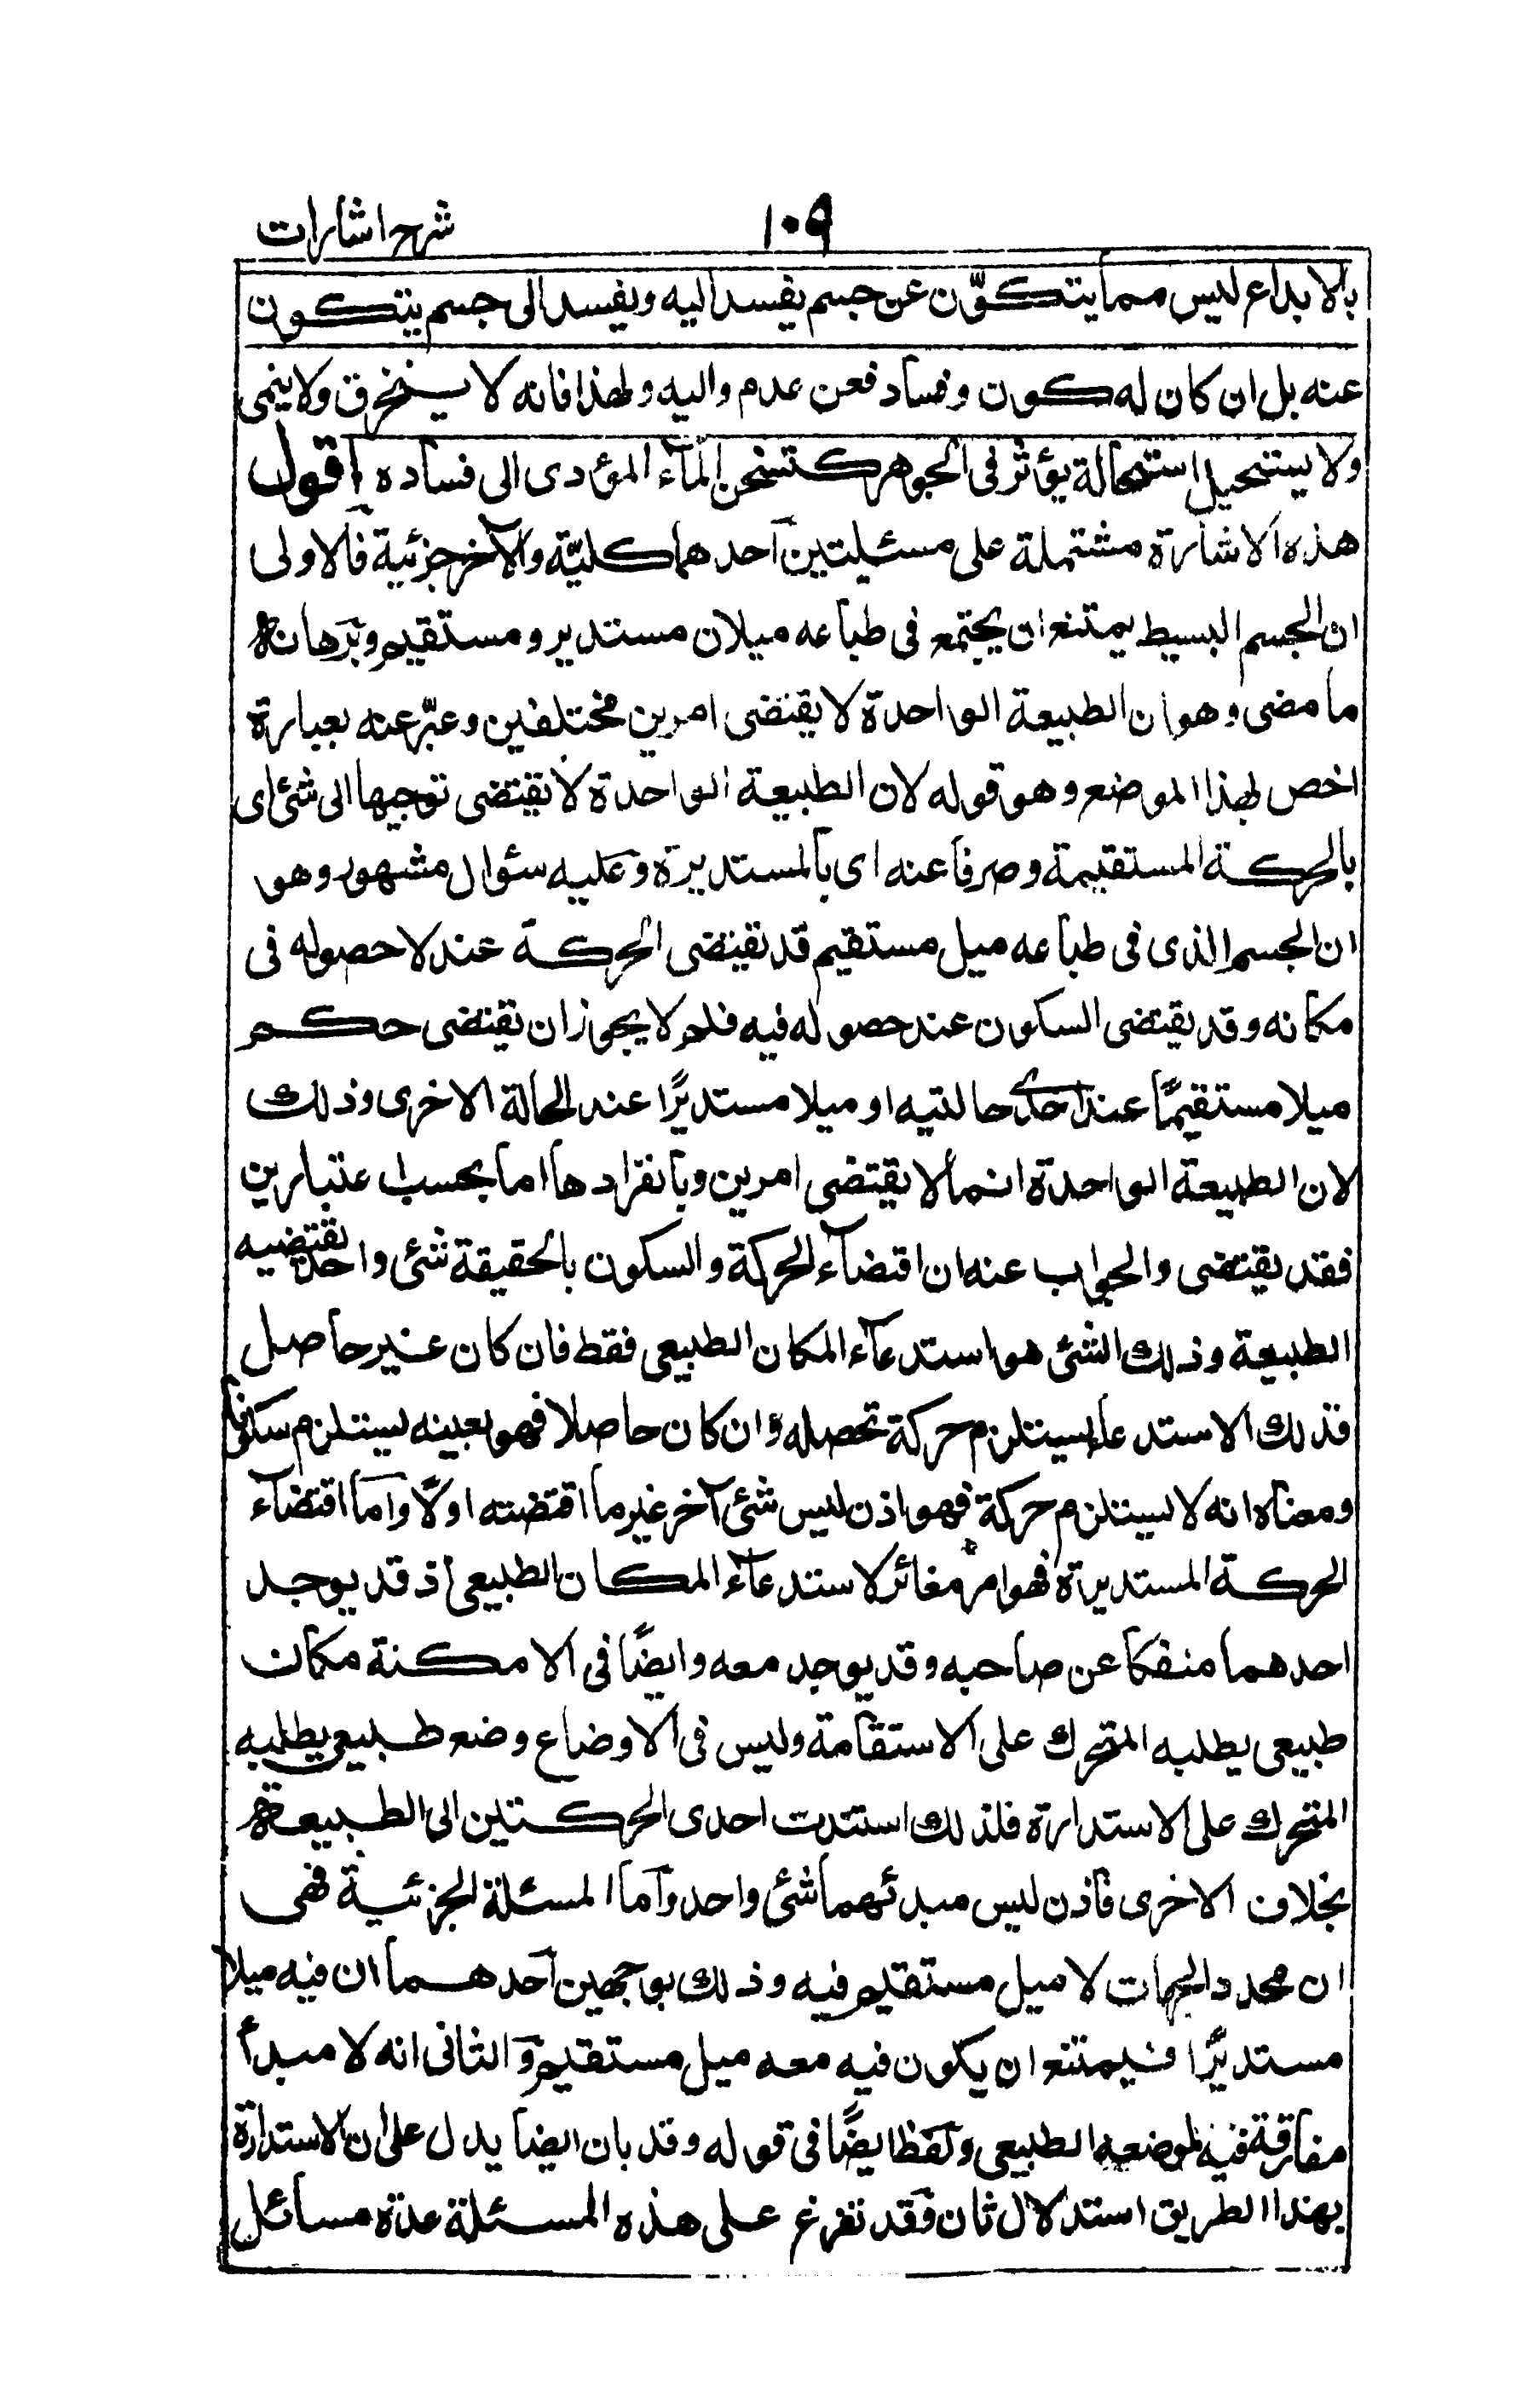 شرح اشارات ١٠٩
بالابداع ليس مما يتكوّن عن جسم يفسد اليه ويفسد الى جسم يتكون
عنه بل ان كان له كون وفساد فعن عدم واليه ولهذا فانه لا ينخرق ولا ينمى
ولا يستحيل استحالة يؤثر فى الجوهر كتسخن المآء المؤدى الى فساده اقول
هذه الاشارة مشتملة على مسئلتين آحدهما كليّة والآخر جزئية فالاولى
ان الجسم البسيط يمتنع ان يجتمع فى طباعه ميلان مستدير ومستقيم وبرهانه
ما مضى وهو ان الطبيعة الواحدة لا يقتضى امرين مختلفين وعبّر عنه بعبارة
اخص لهذا الموضع وهو قوله لان الطبيعة الواحدة لا تقتضى توجيها الى شئ اى
بالحركة المستقيمة وصرفا عنه اى بالمستديرة وعليه سئوال مشهور وهو
ان الجسم الذى فى طباعه ميل مستقيم قد تقتضى الحركة عند لا حصوله فى
مكانه وقد يقتضى السكون عند حصوله فيه فلم لا يجوز ان يقتضى حكم
ميلا مستقيمًا عند احدى حالتيه او ميلا مستديرًا عند الحالة الاخرى وذلك
لان الطبيعة الواحدة انما لا يقتضى امرين وبانفرادها اما بحسب اعتبارين
فقد يقتضى والجواب عنه ان اقتضآء الحركة والسكون بالحقيقة شئ واحد تقتضيه
الطبيعة وذلك الشئ هو استدعآء المكان الطبيعى فقط فان كان غير حاصل
فذلك الاستدعا يستلزم حركة تحصله وان كان حاصلا فهو بعينه يستلزم سكونا
ومعناه انه لا يستلزم حركة فهو اذن ليس شئ آخر غير ما اقتضته اولًا وآما اقتضآء
الحركة المستديرة فهو امر مغائر لاستدعآء المكان الطبيعى اذ قد يوجد
احدهما منفكا عن صاحبه وقد يوجد معه وايضًا فى الامكنة مكان
طبيعى يطلبه المتحرك على الاستقامة وليس فى الاوضاع وضع طبيعى يطلبه
المتحرك على الاستدارة فلذلك استندت احدى الحركتين الى الطبيعة
بخلاف الاخرى فاذن ليس مبدئهما شئ واحد وآما المسئلة الجزئية فهى
ان محدد الجهات لا ميل مستقيم فيه وذلك بوجهين آحدهما ان فيه ميلا
مستديرًا فيمتنع ان يكون فيه معه ميل مستقيم وّالثانى انه لا مبدأ
مفارقة فيه لموضعه الطبيعى ولفظ ايضًا فى قوله وقد بان ايضا يدل على ان الاستدارة
بهذا الطريق استدلال ثان فقد تفرع على هذه المسئلة عدة مسائل